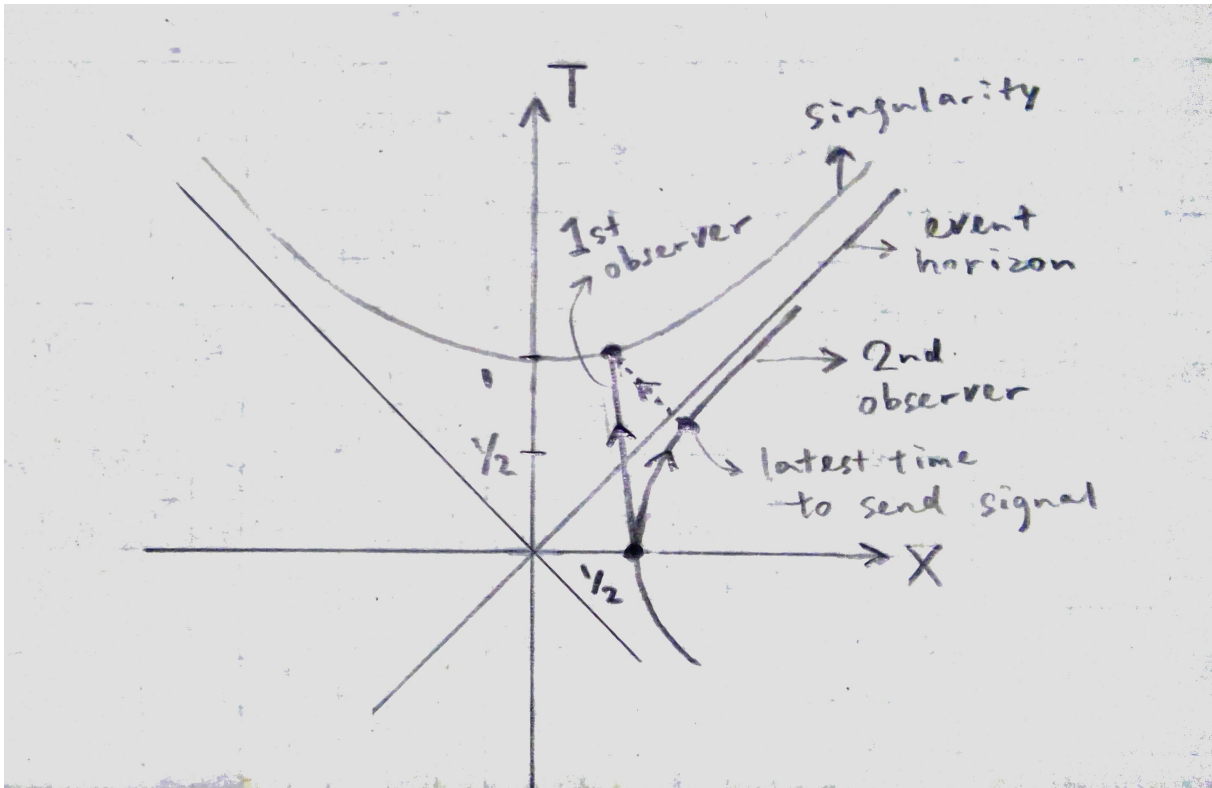 T
singularity
1st
observer
event
horizon
2nd
observer
1
1/2
latest time
to send signal
1/2
X